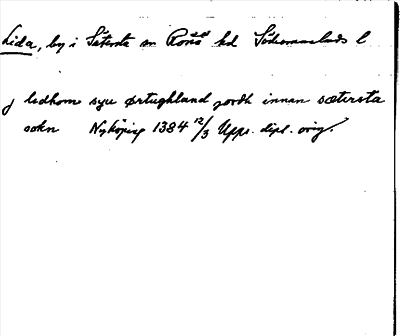 Lida, by i Sätersta sn Rönö hd Södermanlands l
j lidhom syu ørtughland jordh innan sætersta
sokn Nyköping 1384 12/3 Upps. dipl. orig.